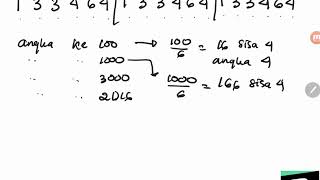 1 3 3 4 6 4 | 1 3 3 4 6 4 | 1 3 3 4 6 4
angka ke 100 → 100/6 = 16 sisa 4
" " 1000 angka 4
" " 3000 1000/6 = 166 sisa 4
" " 2016